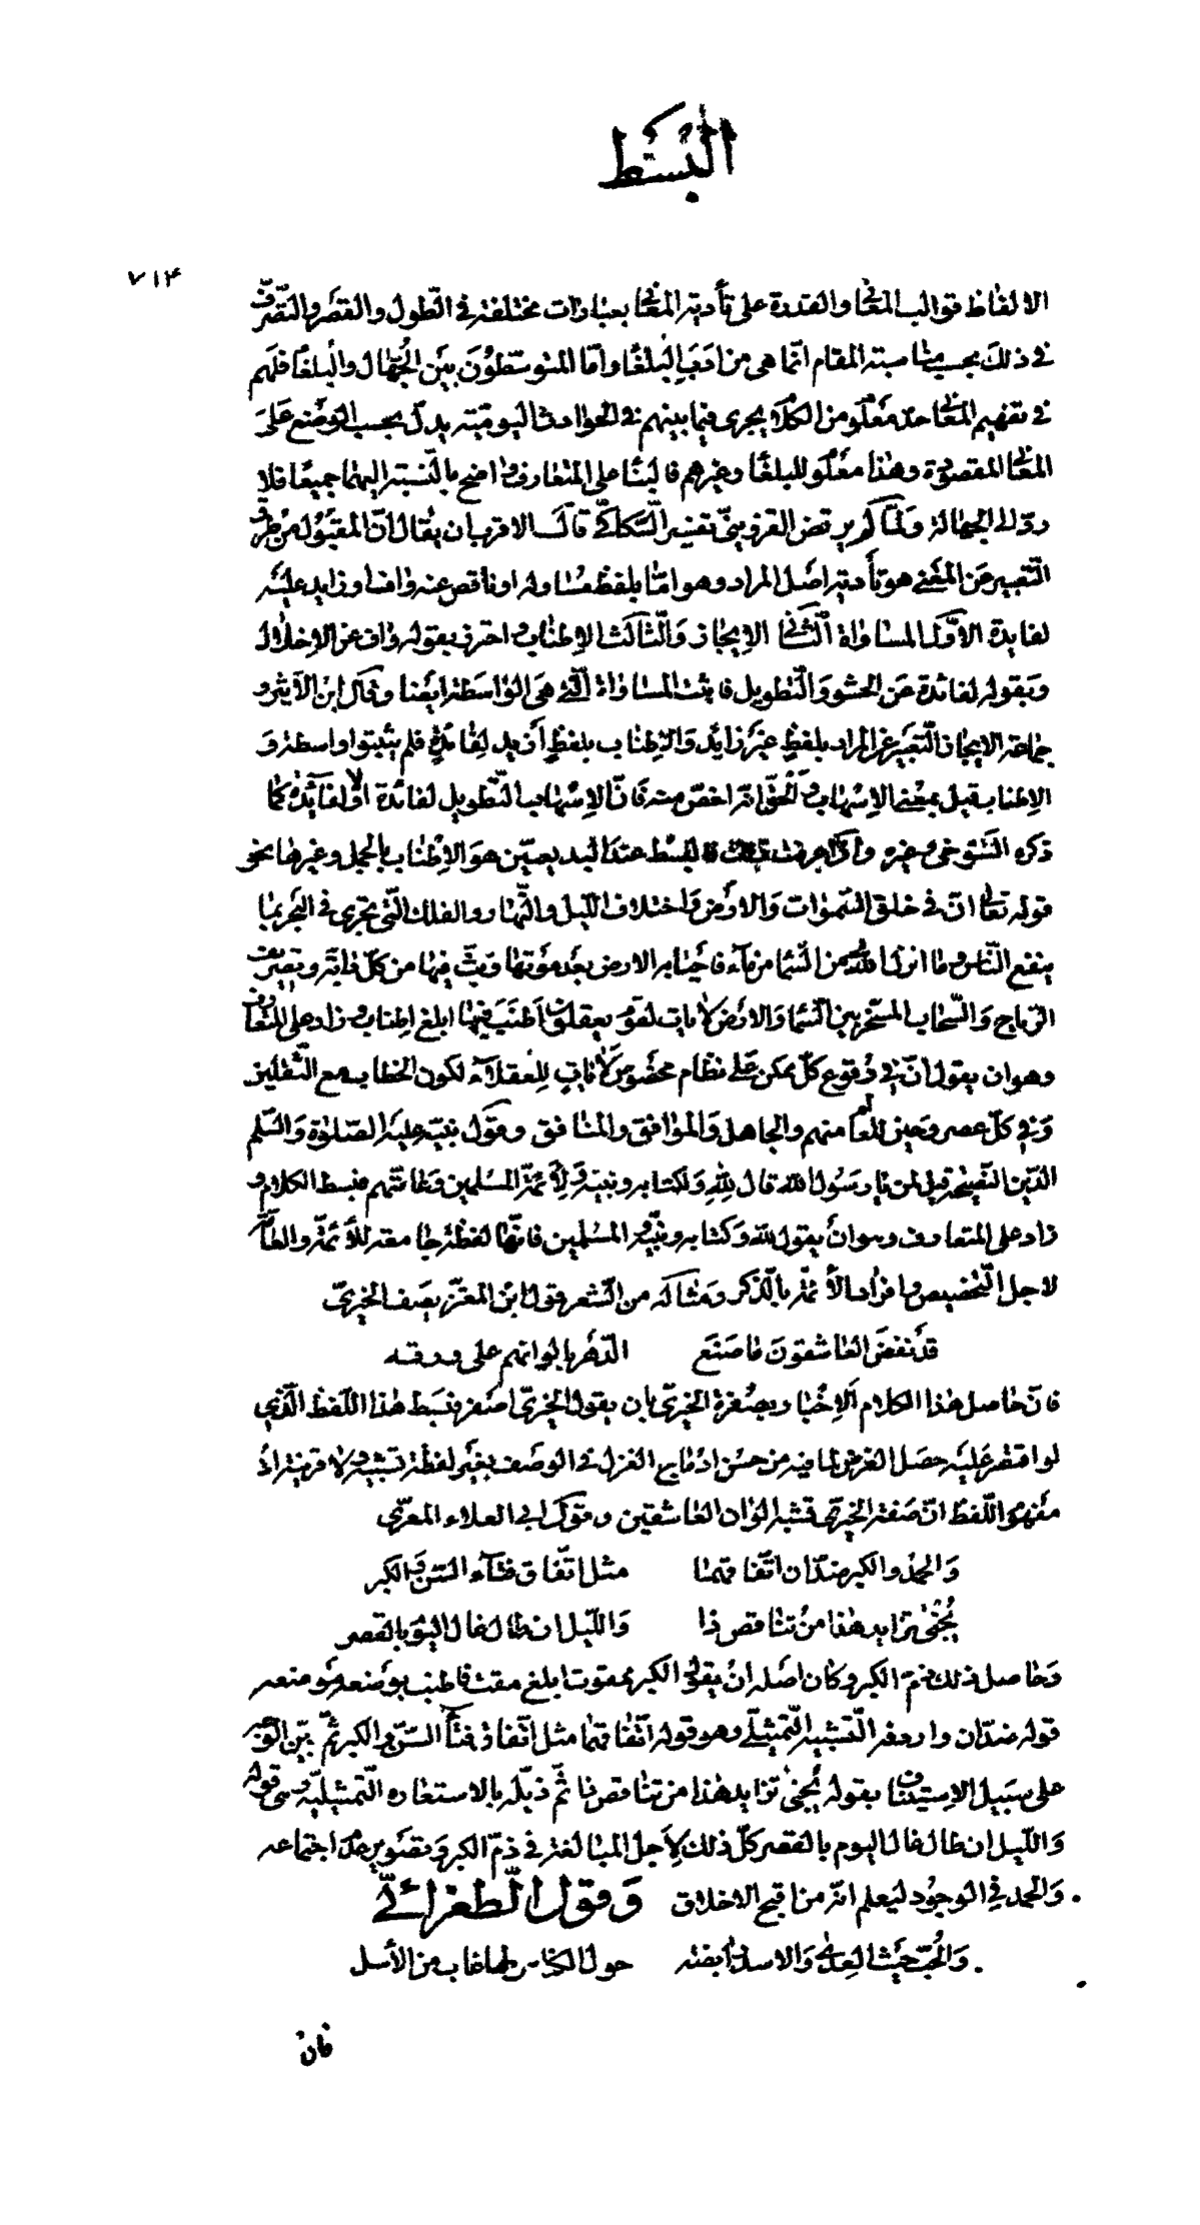 البسط
٧١۴
الالفاظ قوالب المعانى والقدرة على تأدية المعنى بعبارات مختلفة فى الطول والقصر والتصرّف
فى ذلك بحسب مناسبة المقام انّما هى من ادب البلغا وامّا المتوسّطون بين الجُهّال والبلغا فلهم
فى تفهيم المعانى حدّ معلوم من الكلام يجرى فيما بينهم فى الحوادث اليوميّة يدلّ بحسب الوضع على
المعانى المقصودة وهذا معلوم للبلغا وغيرهم فالبنا على المتعارف واضح بالنّسبة اليهما جميعًا فلا
ردّ الى الجهالة ولمّا لم يرتض القزوينىّ تفسير السّكاكىّ قال الاقرب ان يقال انّ المقبول من طرق
التّعبير عن المعنى هو تأدية اصل المراد وهو امّا بلفظ مساوله او ناقص عنه واف او زايد عليه
لفايدة الاوّل المساواة الثّانى الايجاز والثّالث الاطناب احترز بقوله واف عن الاخلال
وبقوله لفائدة عن الحشو والتّطويل فاثبت المساواة الّتى هى الواسطة ايضا وقال ابن الاثير و
جماعة الايجاز التّعبير عن المراد بلفظٍ غير زائد والاطناب بلفظٍ أزيد لفائدةٍ فلم يثبتوا واسطة و
الاطناب قيل بمعنى الاسهاب والحقّ انّه اخصّ منه فانّ الاسهاب التّطويل لفائدة اولا لفائدة كما
ذكره التّنوخى وغيره واذا عرفت ذلك فالبسط عند البديعيّين هو الاطناب بالجمل وغيرها نحو
قوله تعالى انّ فى خلق السّموات والارض واختلاف اللّيل والنّهار والفلك الّتى تجرى فى البحر بما
ينفع النّاس وما انزل اللّه من السّما من مآء فاحيا به الارض بعد موتها وبثّ فيها من كلّ دابّة وتصريف
الرّياح والسّحاب المسخّر بين السّما والارض لايات لقوم يعقلون اطنب فيها ابلغ اطناب وزاد على المتعارف
وهو ان يقول انّ فى وقوع كلّ ممكن على نظام مخصوص لايات للعقلاء لكون الخطاب مع الثّقلين
وفى كلّ عصر وحين للعالم منهم والجاهل والموافق والمنافق وقول نبيّه عليه الصّلوة والسّلم
الدّين النّصيحة قيل لمن يا رسول اللّه قال للّه ولكتابه ونبيّه ولأئمّة المسلمين وعامّتهم فبسط الكلام و
زاد على المتعارف وهو ان يقول للّه وكتابه ونبيّه والمسلمين فانّها لفظة جامعة للأئمّة والعامّة
لاجل التّخصيص وافراد الأئمّة بالذّكر ومثاله من الشّعر قول ابن المعتزّ يصف الخيرىّ
قد نفض العاشقون ما صنع الدّهر بالوانهم على ورقه
فانّ حاصل هذا الكلام الاخبار بصفرة الخيرىّ بان يقول الخيرىّ اصفر فبسط هذا اللّفظ الّذى
لو اقتصر عليه حصل الغرض لما فيه من حسن ادماج الغزل فى الوصف بغير لفظة تشبيه ولا قرينة اذ
مفهوم اللّفظ انّ صفة الخيرىّ تشبه الوان العاشقين وقول ابى العلاء المعرّى
والحمد والكبر ضدّان اتّفاقهما مثل اتّفاق فتاء السّنّ والكبر
يُجنى تزايد هذا من تناقص ذا واللّيل ان طال غال اليوم بالقصر
وحاصل ذلك ذمّ الكبر وكان اصله ان يقول الكبر ممقوت ابلغ مقت فاطنب بوضعه موضعه
قوله ضدّان واردفه التّشبيه التّمثيلىّ وهو قوله اتّفاقهما مثل اتّفاق فتآ السّنّ والكبر ثمّ بيّن
على سبيل الاستيناف بقوله يُجنى تزايد هذا من تناقص ذا ثمّ ذيّله بالاستعاره التّمثيليّة وهى قوله
واللّيل ان طال غال اليوم بالقصر كلّ ذلك لاجل المبالغة فى ذمّ الكبر وتصوير اجتماعه
والحمد فى الوجود ليعلم انّه من اقبح الاخلاق وقول الطّغرائىّ
والحبّ حيث العدى والاسد رابضة حول الكناس لها غاب من الأسل
فان